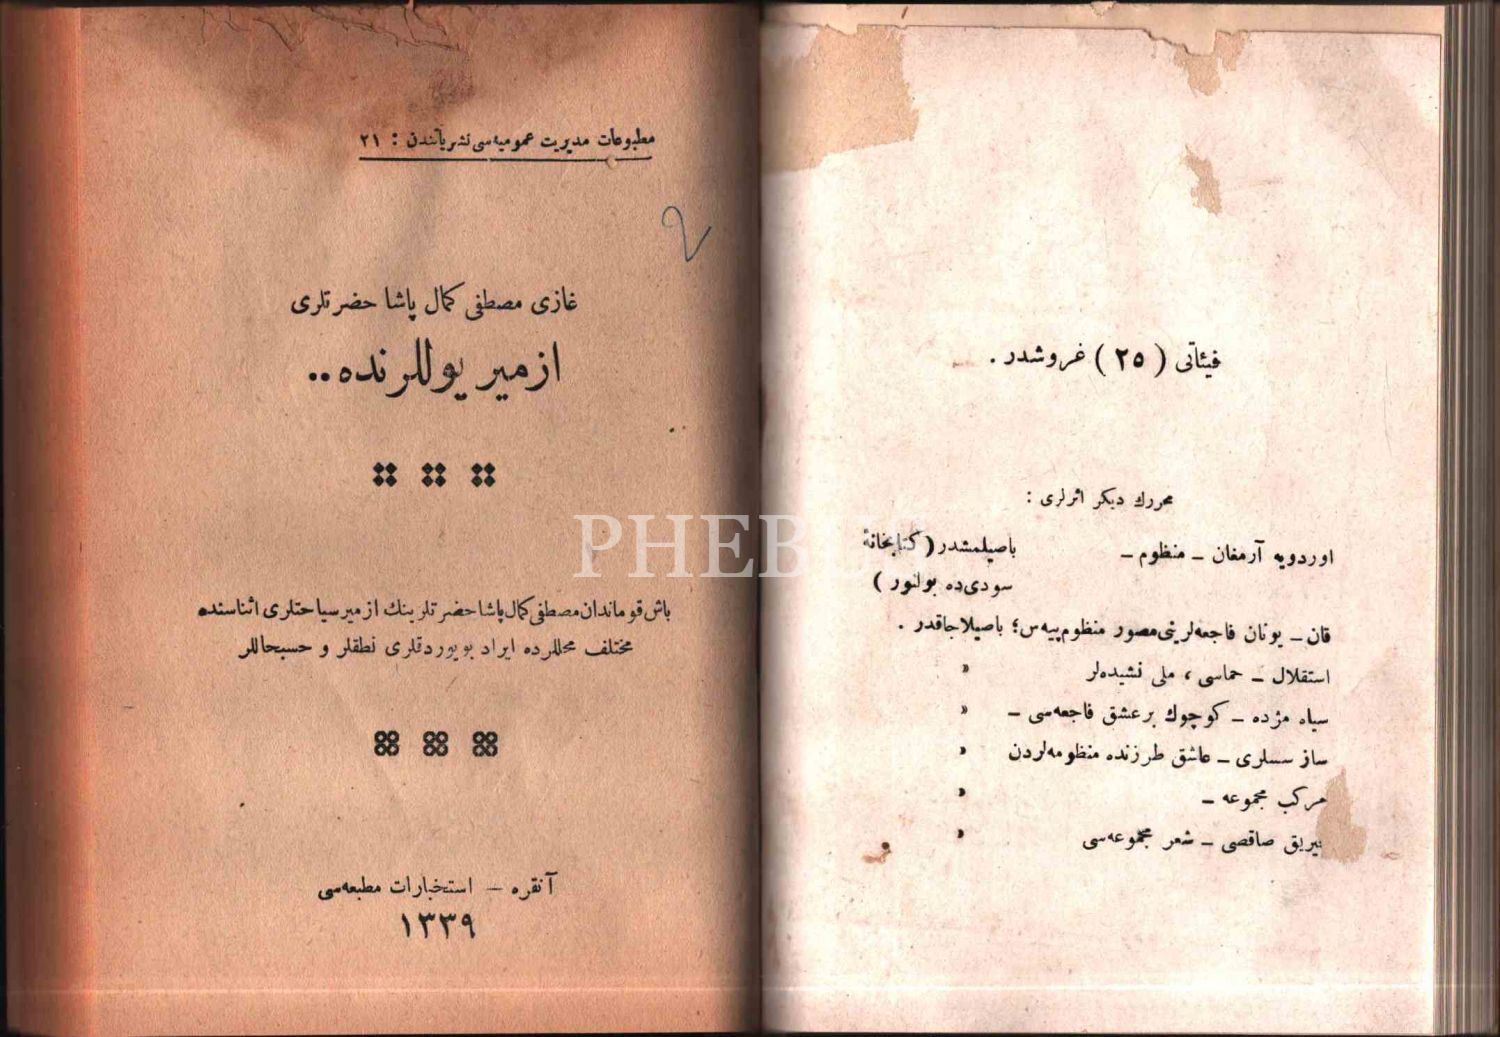 مطبوعات مديريت عموميه‌سى نشرياتندن : ٢١
غازى مصطفى كمال پاشا حضرتلرى
ازمير يوللرنده..
باش قوماندان مصطفى كمال پاشا حضرتلرينك ازمير سياحتلرى اثناسنده
مختلف محللرده ايراد بويوردقلرى نطقلر و حسبحاللر
آنقره — استخبارات مطبعه‌سى
١٣٣٩
فيئاتى ( ٢٥ ) غروشدر .
محررك ديكر اثرلرى :
اوردويه آرمغان — منظوم — باصيلمشدر ( كتابخانهٔ
سودى‌ده بولنور )
قان — يونان فاجعه‌لرينى مصور منظوم پيه‌س؛ باصيلاجاقدر .
استقلال — حماسى ، ملى نشيده‌لر »
سياه مژده — كوچوك بر عشق فاجعه‌سى — »
ساز سسلرى — عاشق طرزنده منظومه‌لردن »
مركب مجموعه — »
صاقصى — شعر مجموعه‌سى »
PHEB